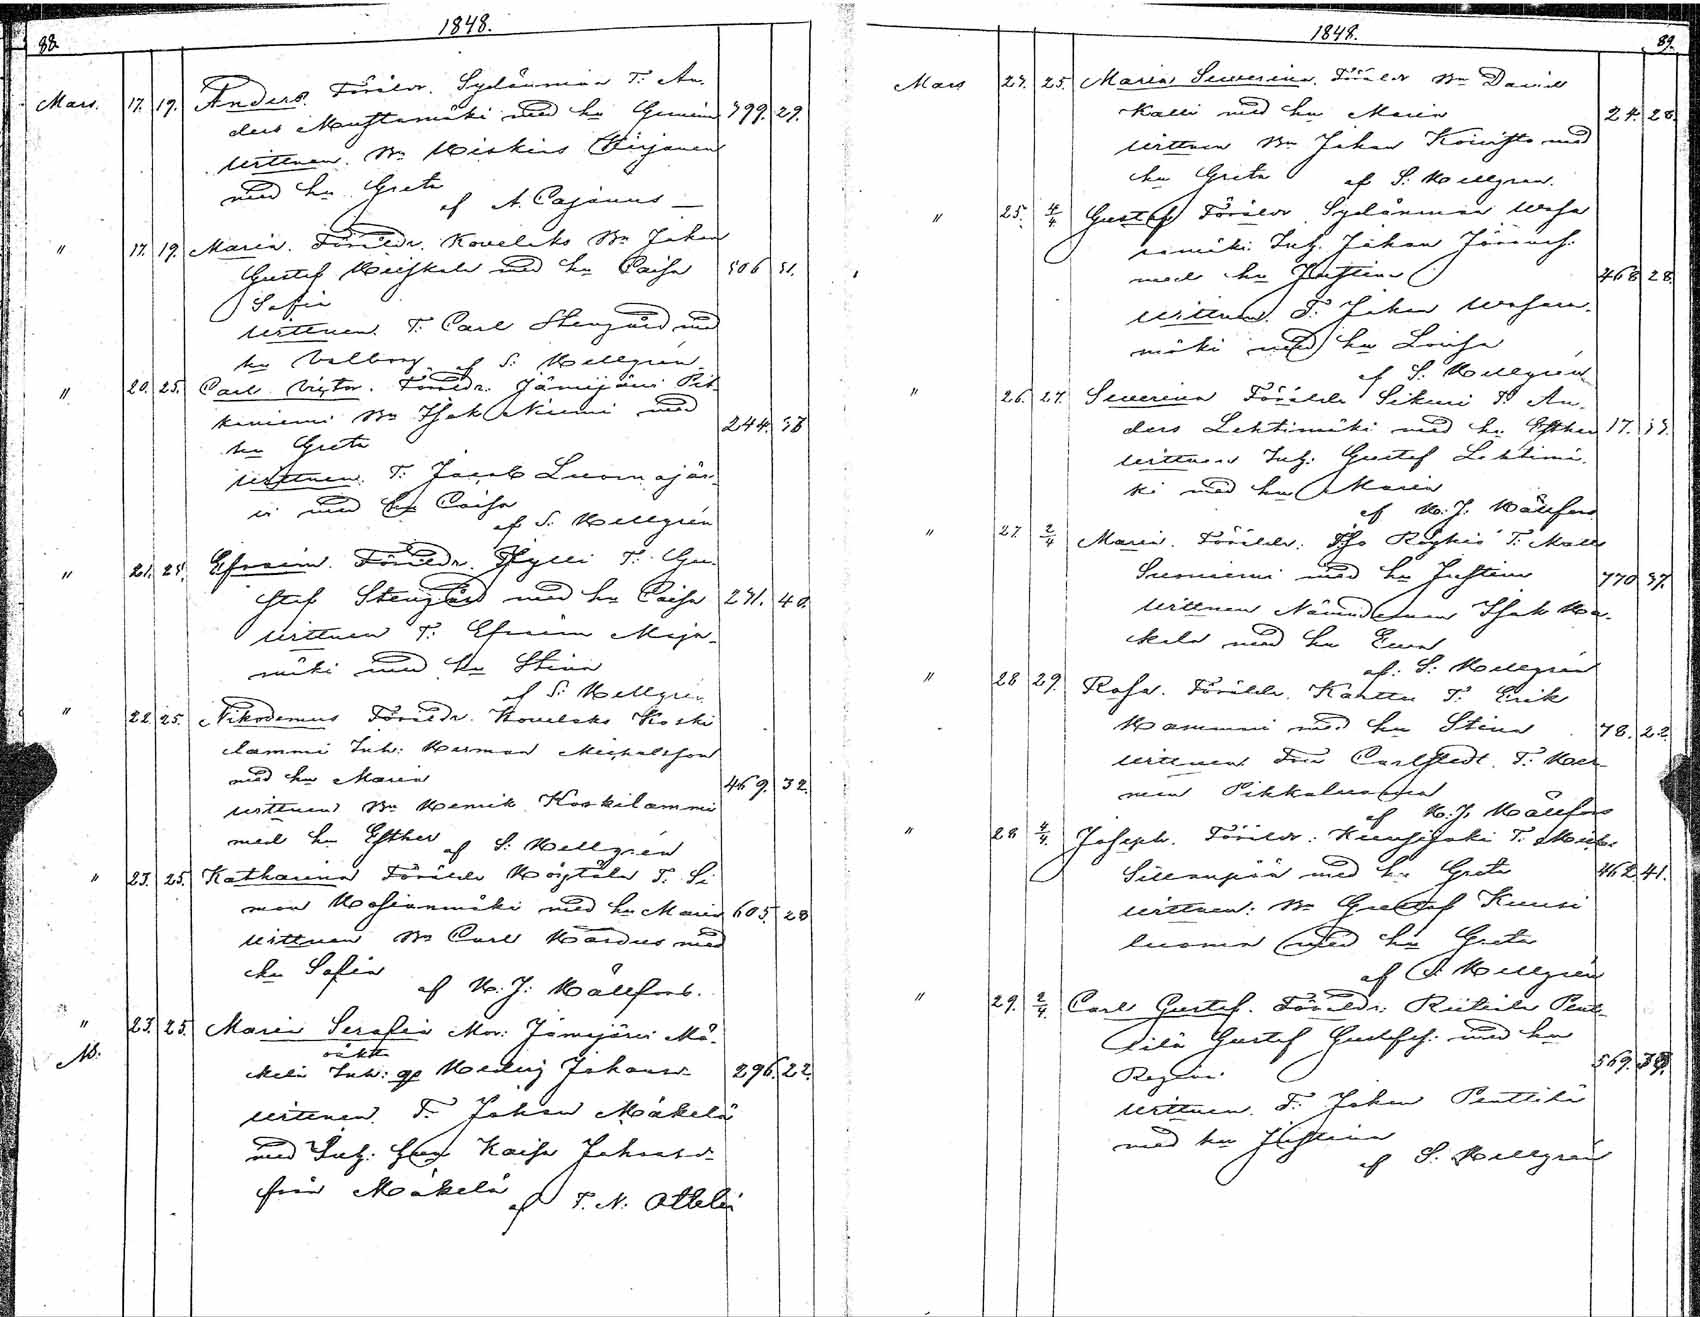 88.
1848.
Mars. 17. 19. Anders. Föräldr. Sydänmaa T. An-
ders Mustamäki med hu 399. 29.
Wittnen. Bn Kirjanen
med hu Greta
af A. Cajanus —
" 17. 19. Maria. Föräldr. Kovelaks Bn Johan
Gustaf med hu Caisa 506 31.
Sofia
Wittnen. T. Carl Stengård med
hu Valborg af S. Hellgrén
" 20. 25. Carl Victor. Föräldr. Jämijärvi Pit-
käniemi Bn Isak Niemi med 244.
hu Greta
Wittnen. T. Jacob Luomajär-
vi med hu Caisa
af S. Hellgrén
" 21. 25. Efraim. Föräldr. T. Gu-
staf Stengård med hu Caisa 231. 40.
Wittnen T. Efraim Maja-
mäki med hu Stina
af S. Hellgrén
" 22. 25. Nikodemus Föräldr. Kovelaks Koski
lammi Inh: Herman Michelsson
med hu Maria 469. 32.
Wittnen Bn Henrik Koskilammi
med hu Esther af S. Hellgrén
" 23. 25. Katharina Föräldr T. Si
mon med hu Maria 605. 28
Wittnen Bn Carl med
hu Sofia
af H. J. Hällfors.
" 23. 25. Maria Serafia Mor: Jämijärvi Mä-
oäkta
Nb. kelä Inh: Hedvig Johansdr 296. 22.
Wittnen. T. Johan Mäkelä
med Inh. Kaisa Johansdr
från Mäkelä
af T. N.
1848.
89.
Mars 23. 25. Maria Severina. Föräldr Bn David
Kalli med hu Maria 24. 28.
Wittnen Bn Johan Koivisto med
hu Greta af S. Hellgrén.
" 25. 4/4 Gustaf Föräldr. Sydänmaa Waha
inmäki Inh. Johan
med hu Justina 468 28.
Wittnen. T. Johan Wahan-
mäki med hu Lovisa
af S. Hellgrén
" 26. 27. Severina Föräldr Sikuri T. An-
ders Lehtimäki med hu Esther 17. 33.
Wittnen Inh. Gustaf Lehtimä-
ki med hu Maria
af H. J. Hällfors
" 27. 2/4 Maria. Föräldr: Iso Röyhiö T. Matts
Suoniemi med hu Justina 770 37.
Wittnen Nämndeman Isak Ha-
kala med hu Eva
af: S. Hellgrén
" 28 29. Rosa. Föräldr. Kantti T. Erik
med hu Stina 78. 22
Wittnen Carlstedt, T. Her-
man Pikkaluoma
af H. J. Hällfors
" 28 4/4. Joseph. Föräldr: T.
Sillanpää med hu Greta 462. 41.
Wittnen: Bn Gustaf Kuusi
luoma med hu Greta
af S: Hellgrén
" 29. 2/4. Carl Gustaf. Föräldr: Riitiala Pent-
tilä Gustaf Gustafss. med hu
Regina 569.
Wittnen. T. Johan Penttilä
med hu Justina
af S. Hellgrén